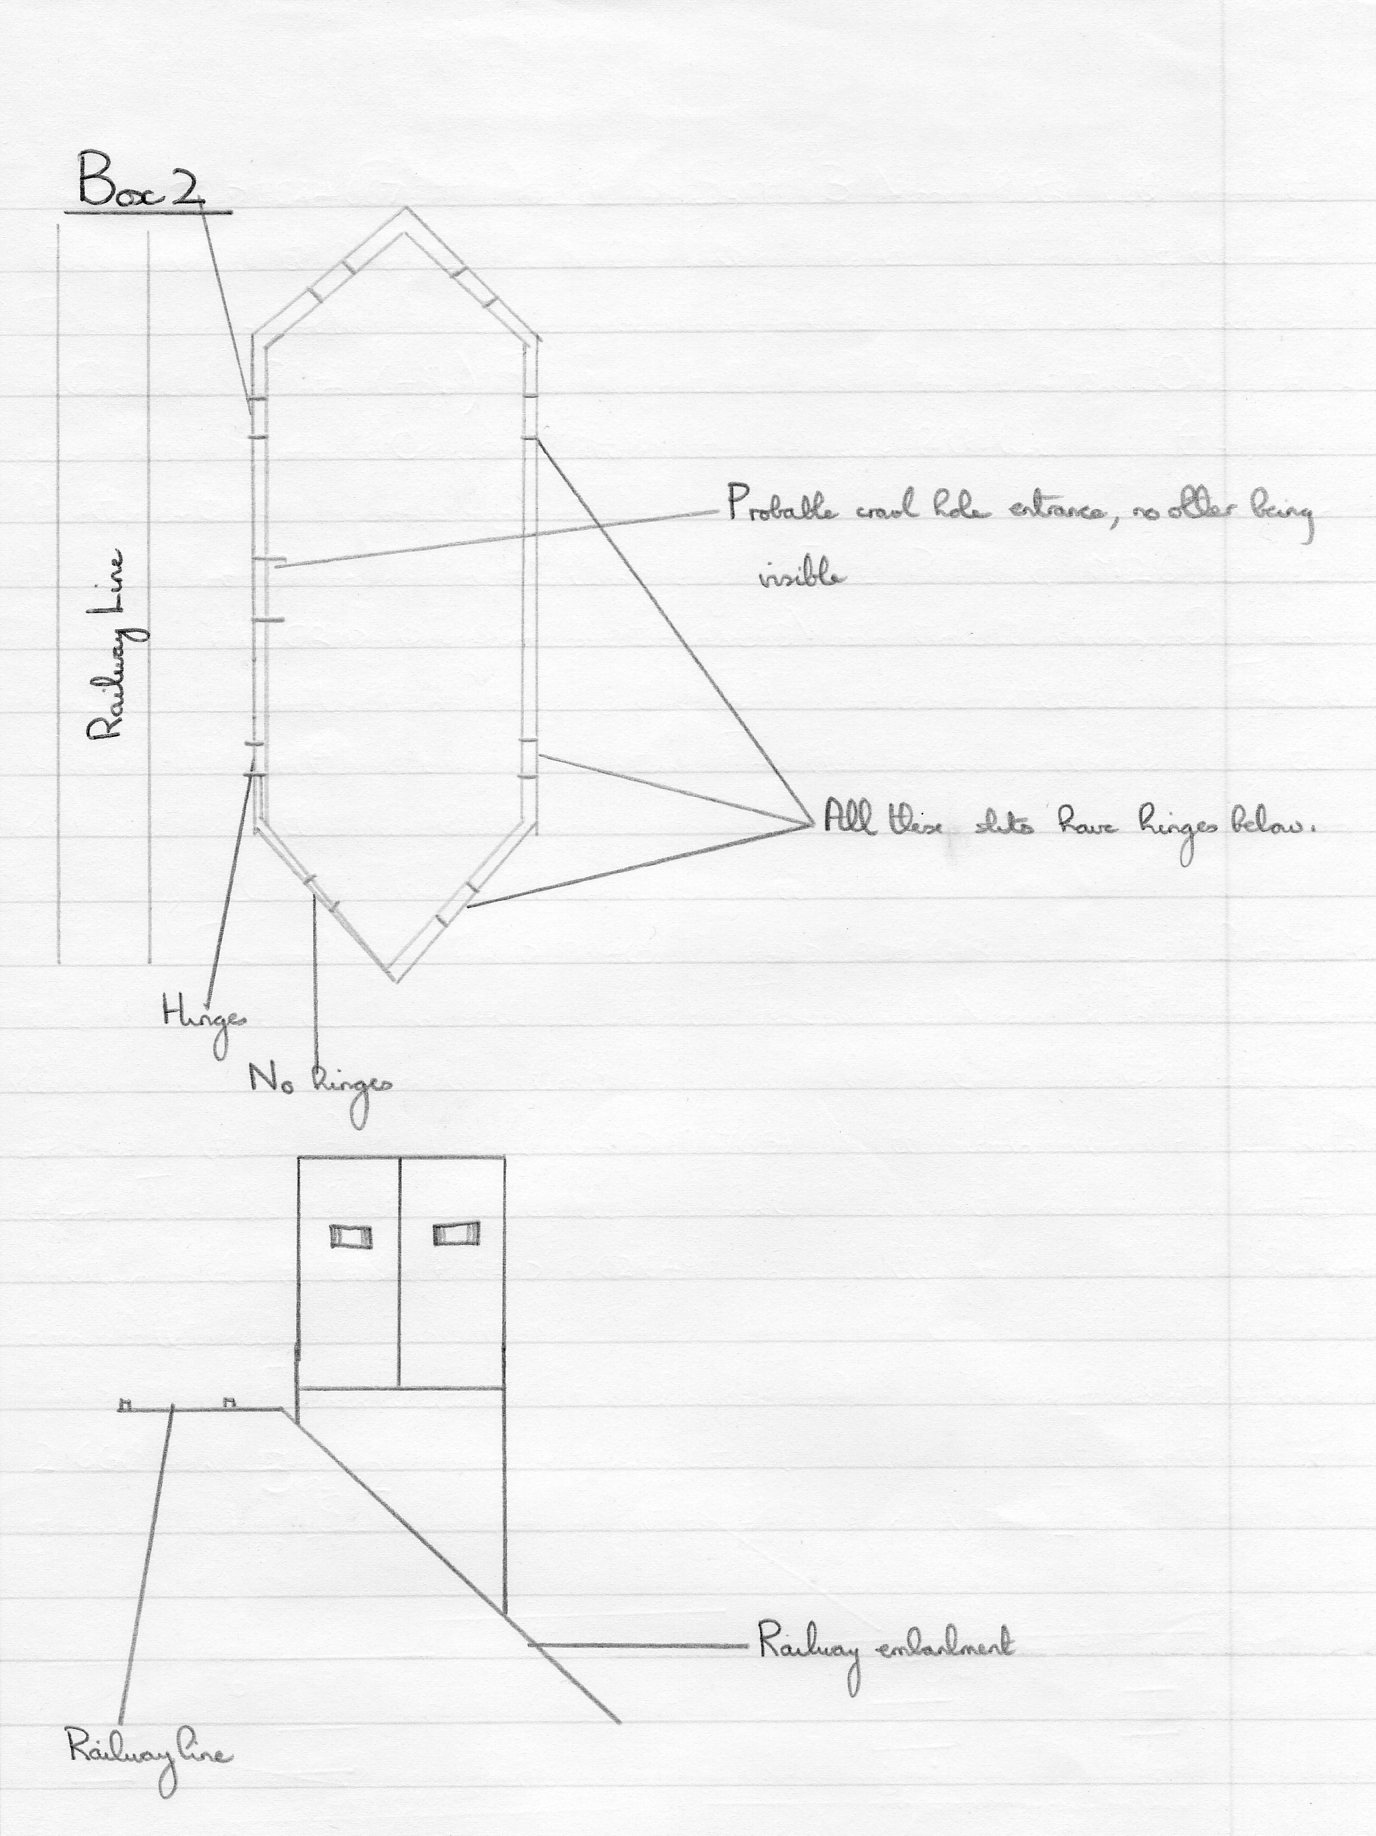 Box 2
Probable crawl hole entrance, no other being
visible
Railway Line
All these slits have hinges below.
Hinges
No hinges
Railway embankment
Railway line